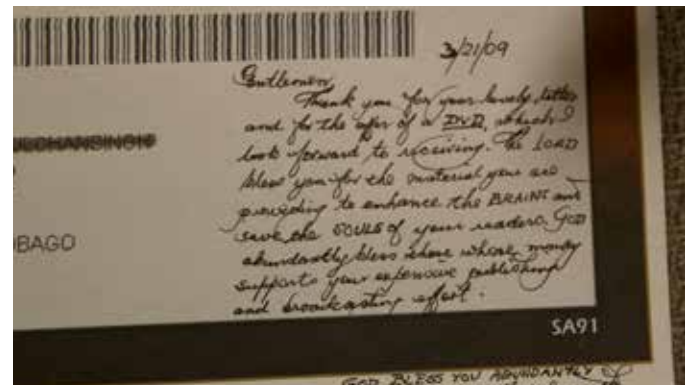 3/21/09
Gentlemen,
Thank you for your lovely letter
and for the offer of a DVD, which I
look forward to receiving. The LORD
bless you for the material you are
providing to enhance the BRAINS and
save the SOULS of your readers. GOD
abundantly bless those whose money
supports your expensive publishing
and broadcasting effort.
OBAGO
SA91
GOD BLESS YOU ABUNDANTLY